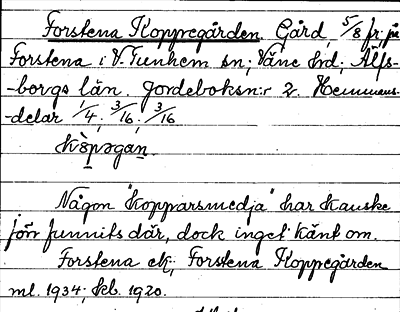 Forstena Koppregården. Gård, 5/8 fr: på
Forstena i V. Tunhem sn; Väne hd; Älfs-
-borgs län. Jordeboksn:r 2. Hemmans-
-delar 1/4; 3/16; 3/16
Någon "kopparsmedja" har kanske
förr funnits där, dock inget känt om.
Forstena ek; Forstena Koppegården
ml. 1934; kb. 1920.